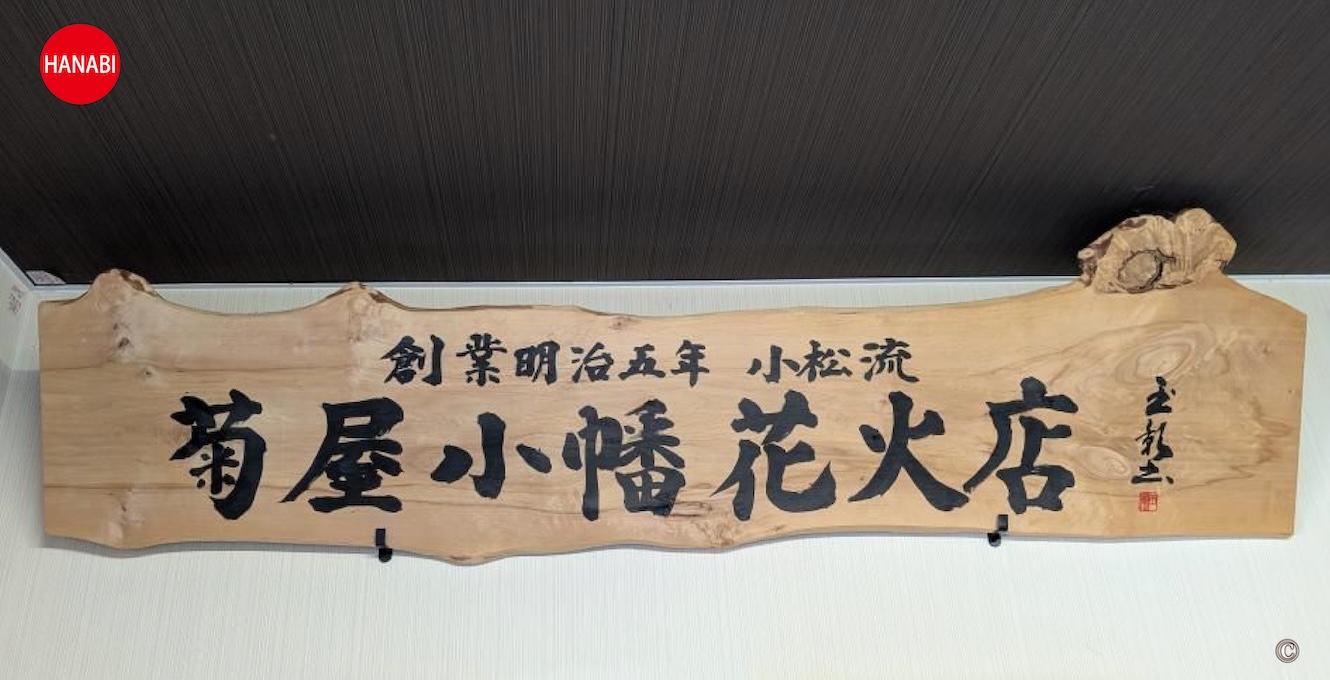 HANABI
創業明治五年 小松流
菊屋小幡花火店
©